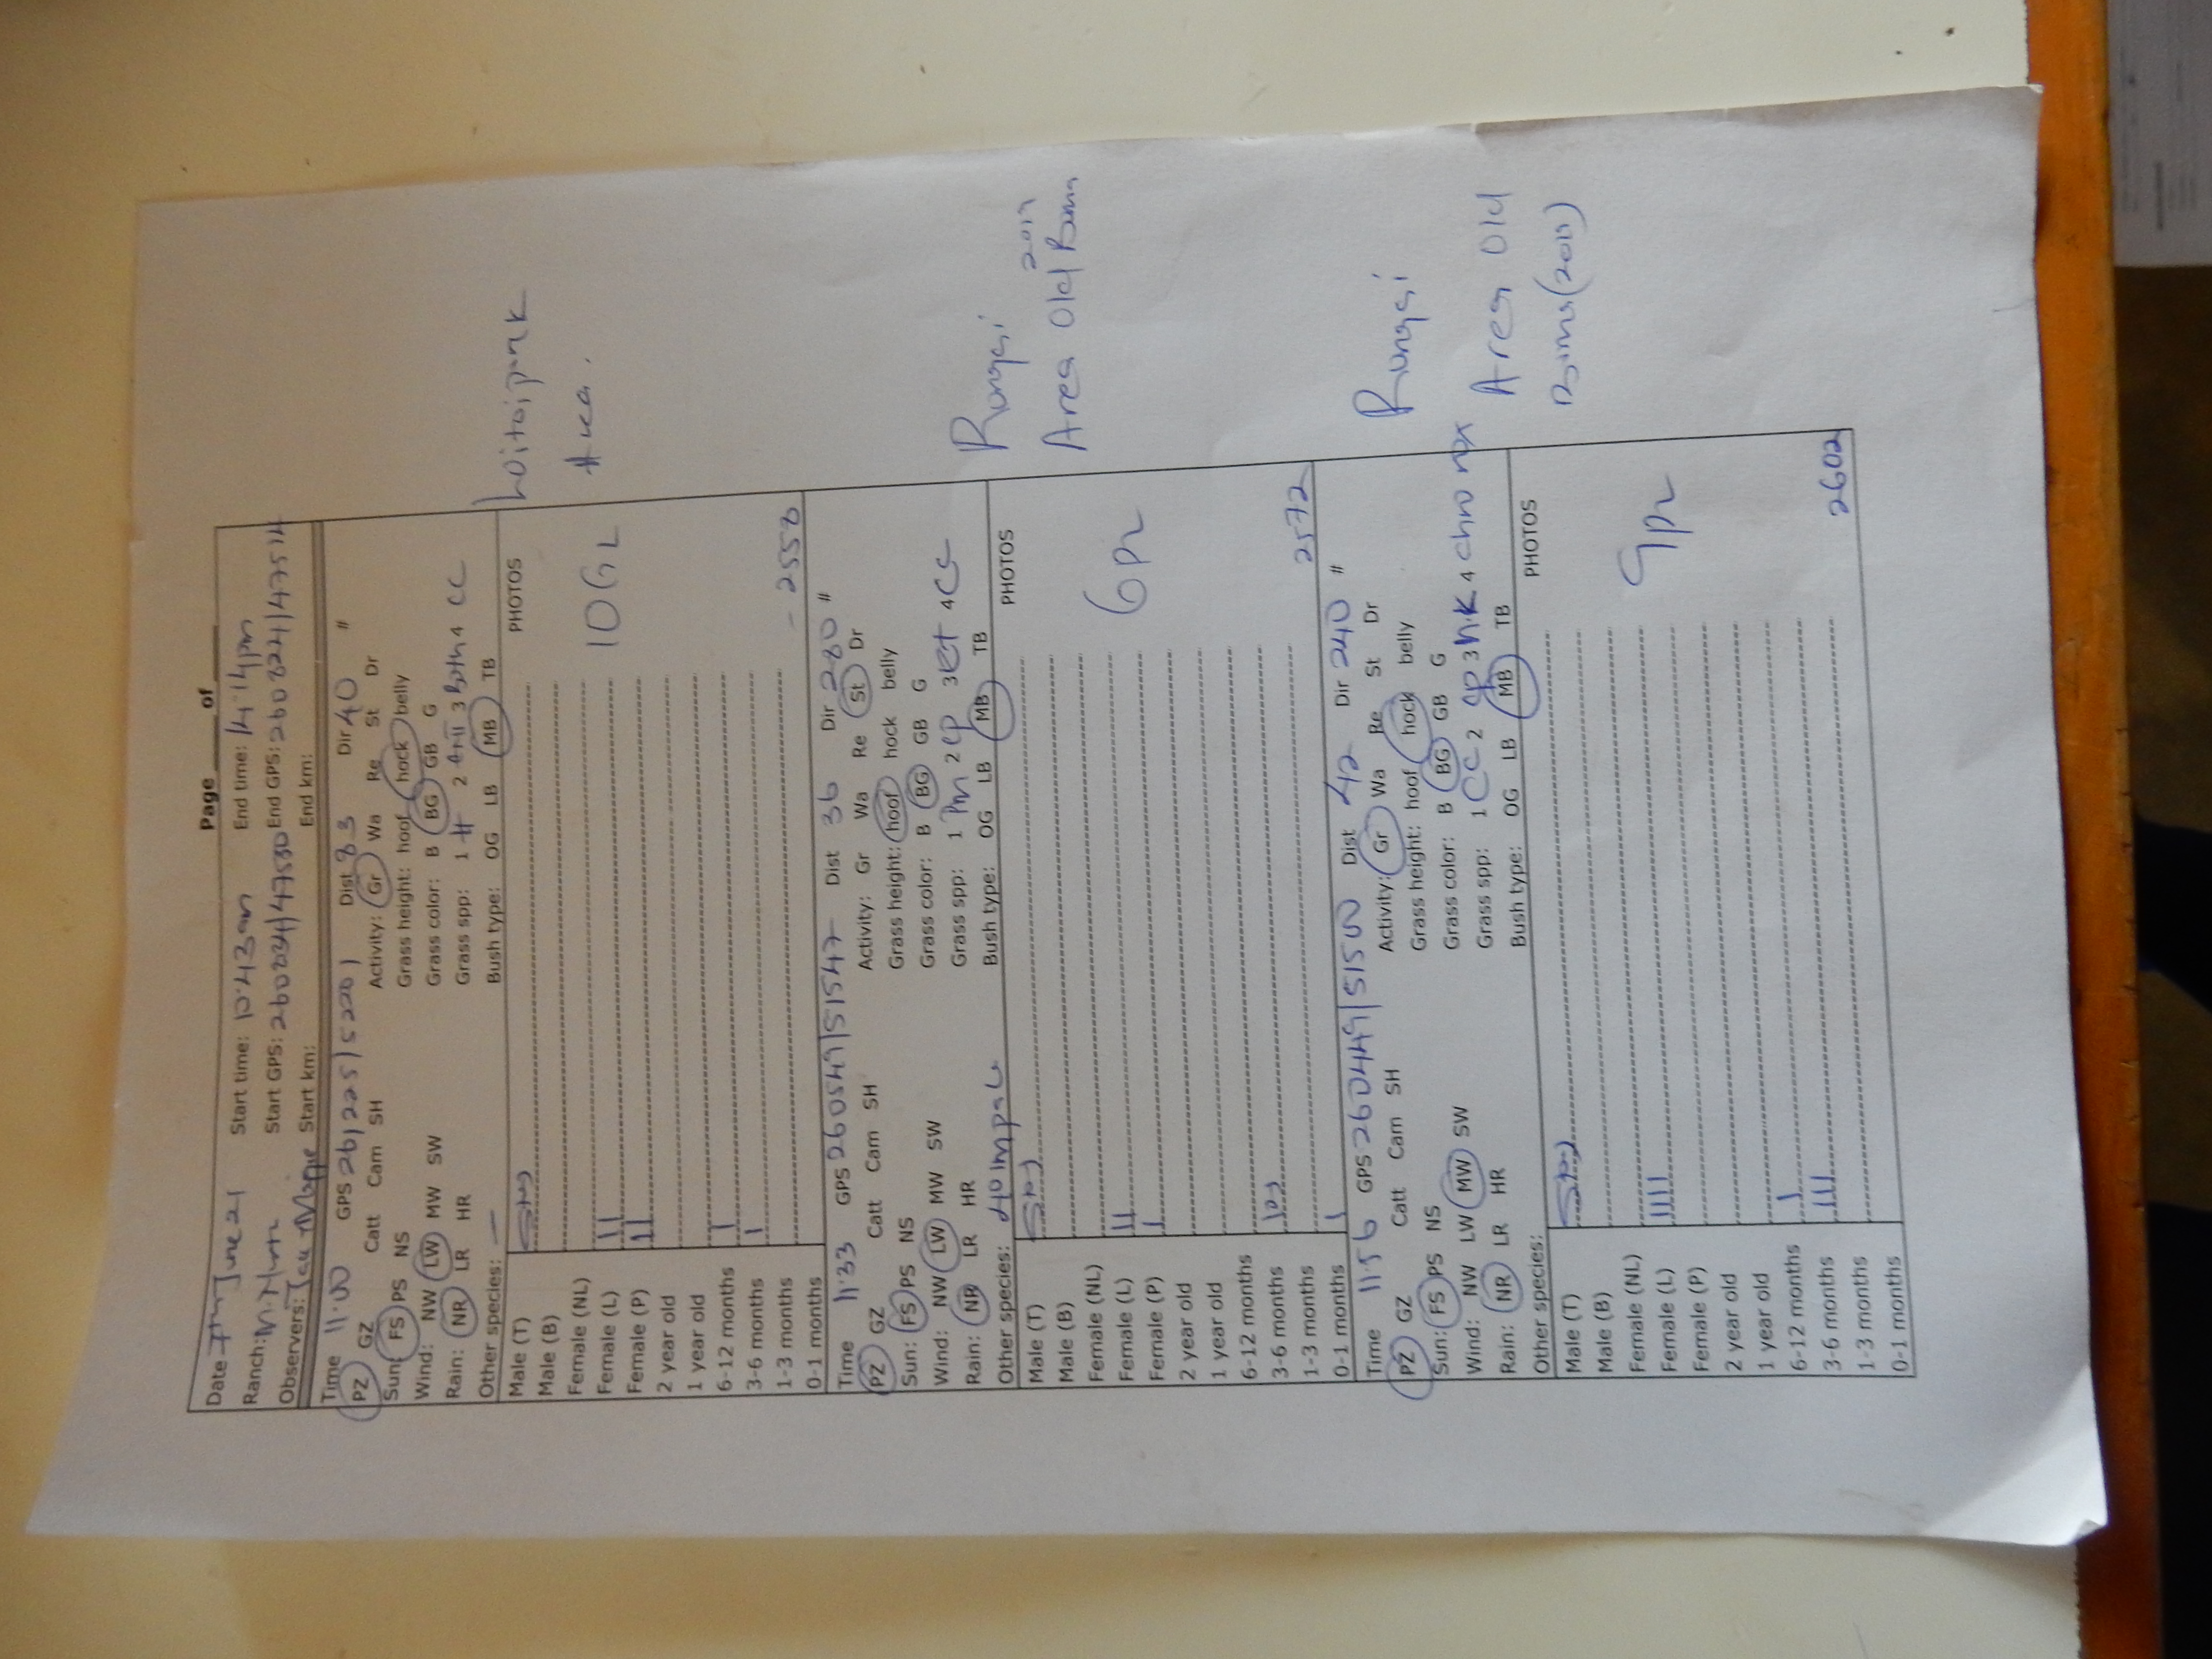 Page ____ of ____
Date 7th June 21 Start time: 10.43am End time: 14.14pm
Ranch: Start GPS: 260834/47530 End GPS: 260824/47514
Observers: Start km: End km:
Time 11.00 GPS 261225/52201 Dist 83 Dir 40 #
PZ GZ Catt Cam SH Activity: Gr Wa Re St Dr
Sun: FS PS NS Grass height: hoof hock belly
Wind: NW LW MW SW Grass color: B BG GB G
Rain: NR LR HR Grass spp: 1 H 2 3 Both 4 CC
Other species: — Bush type: OG LB MB TB
Male (T) PHOTOS
Male (B)
Female (NL)
Female (L) II
Female (P) II
2 year old
1 year old
6-12 months I
3-6 months I
1-3 months
0-1 months
- 2558
Area.
Time 11.33 GPS 260549/51547 Dist 36 Dir 280 #
PZ GZ Catt Cam SH Activity: Gr Wa Re St Dr
Sun: FS PS NS Grass height: hoof hock belly
Wind: NW LW MW SW Grass color: B BG GB G
Rain: NR LR HR Grass spp: 1 Pm 2 CP 3 Et 4 CC
Other species: 40 Impala Bush type: OG LB MB TB
Male (T) PHOTOS
Male (B)
Female (NL)
Female (L) II
Female (P) I
2 year old
1 year old
6-12 months
3-6 months
1-3 months
0-1 months I
2572
Rongai
2019
Area Old Boma
Time 11.56 GPS 260449/51500 Dist 42 Dir 240 #
PZ GZ Catt Cam SH Activity: Gr Wa Re St Dr
Sun: FS PS NS Grass height: hoof hock belly
Wind: NW LW MW SW Grass color: B BG GB G
Rain: NR LR HR Grass spp: 1 CC 2 CP 3 N.K 4
Other species: Bush type: OG LB MB TB
Male (T) PHOTOS
Male (B)
Female (NL)
Female (L) IIII
Female (P)
2 year old
1 year old
6-12 months I
3-6 months III
1-3 months
0-1 months
2602
Rongai
Area Old
Boma (2019)